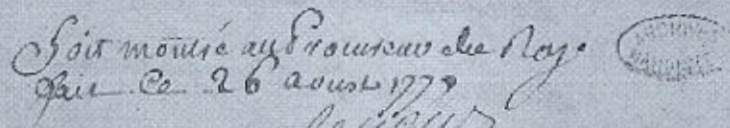 Soit montré au Procureur du Roy.
fait Ce 26 Aoust 1779
ARCHIVES